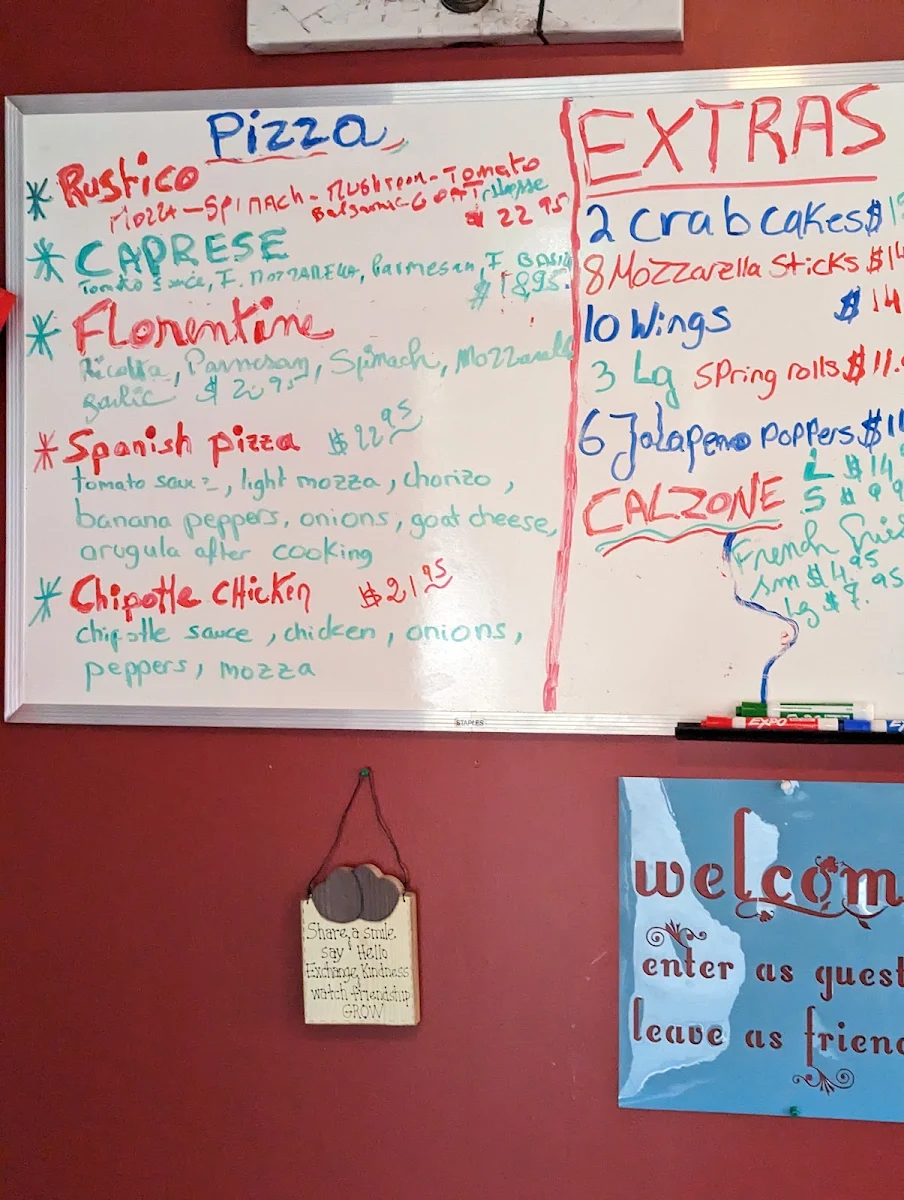 Pizza
* Rustico
Mozza - SPINACH - Mushroom - Tomato
Balsamic - GOAT cheese
$ 22 95
* CAPRESE
Tomato Sauce, F. MOZZARELLA, Parmesan, F. BASIL
$18.95
* Florentine
Ricotta, Parmesan, Spinach, Mozzarella
garlic $ 20 95
* Spanish pizza $22 95
tomato sauce, light mozza, chorizo,
banana peppers, onions, goat cheese,
arugula after cooking
* Chipotle CHicken $21 95
chipotle sauce, chicken, onions,
peppers, mozza
EXTRAS
2 crab cakes $
8 Mozzarella Sticks $14
10 Wings $14
3 Lg SPring rolls $11.
6 Jalapeno PoPPers $11
CALZONE L $14
S $ 9
French
sm $4.95
Lg $7.95
STAPLES
EXPO
Share a smile
say Hello
Exchange Kindness
watch friendship
GROW
welcom
enter as guest
leave as frien